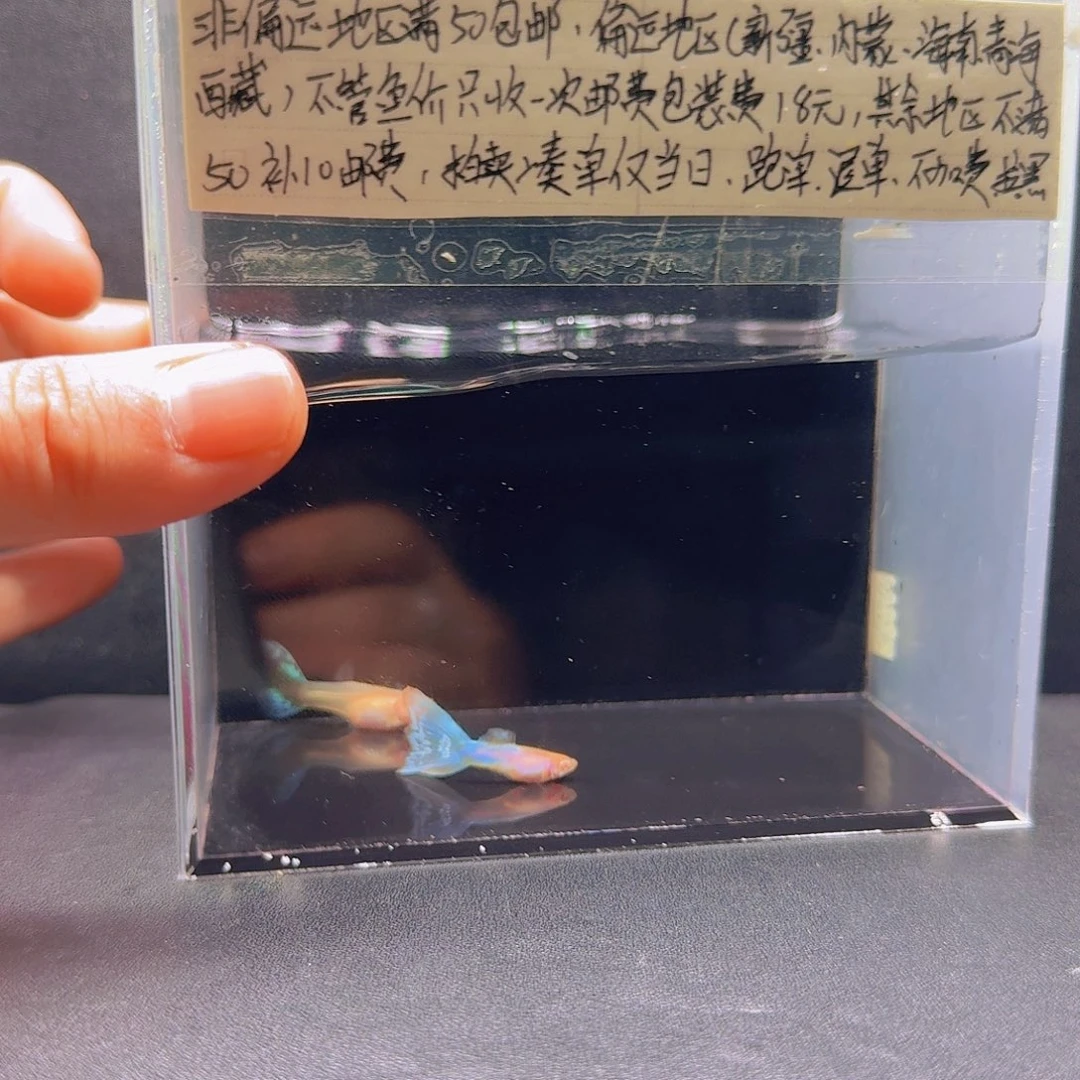 非偏远地区满50包邮，偏远地区（新疆、内蒙、海南青海
西藏）不管鱼价只收一次邮费包装费18元，其余地区不满
50补10邮费，拍卖凑单仅当日、跑单、退单、不加费拉黑